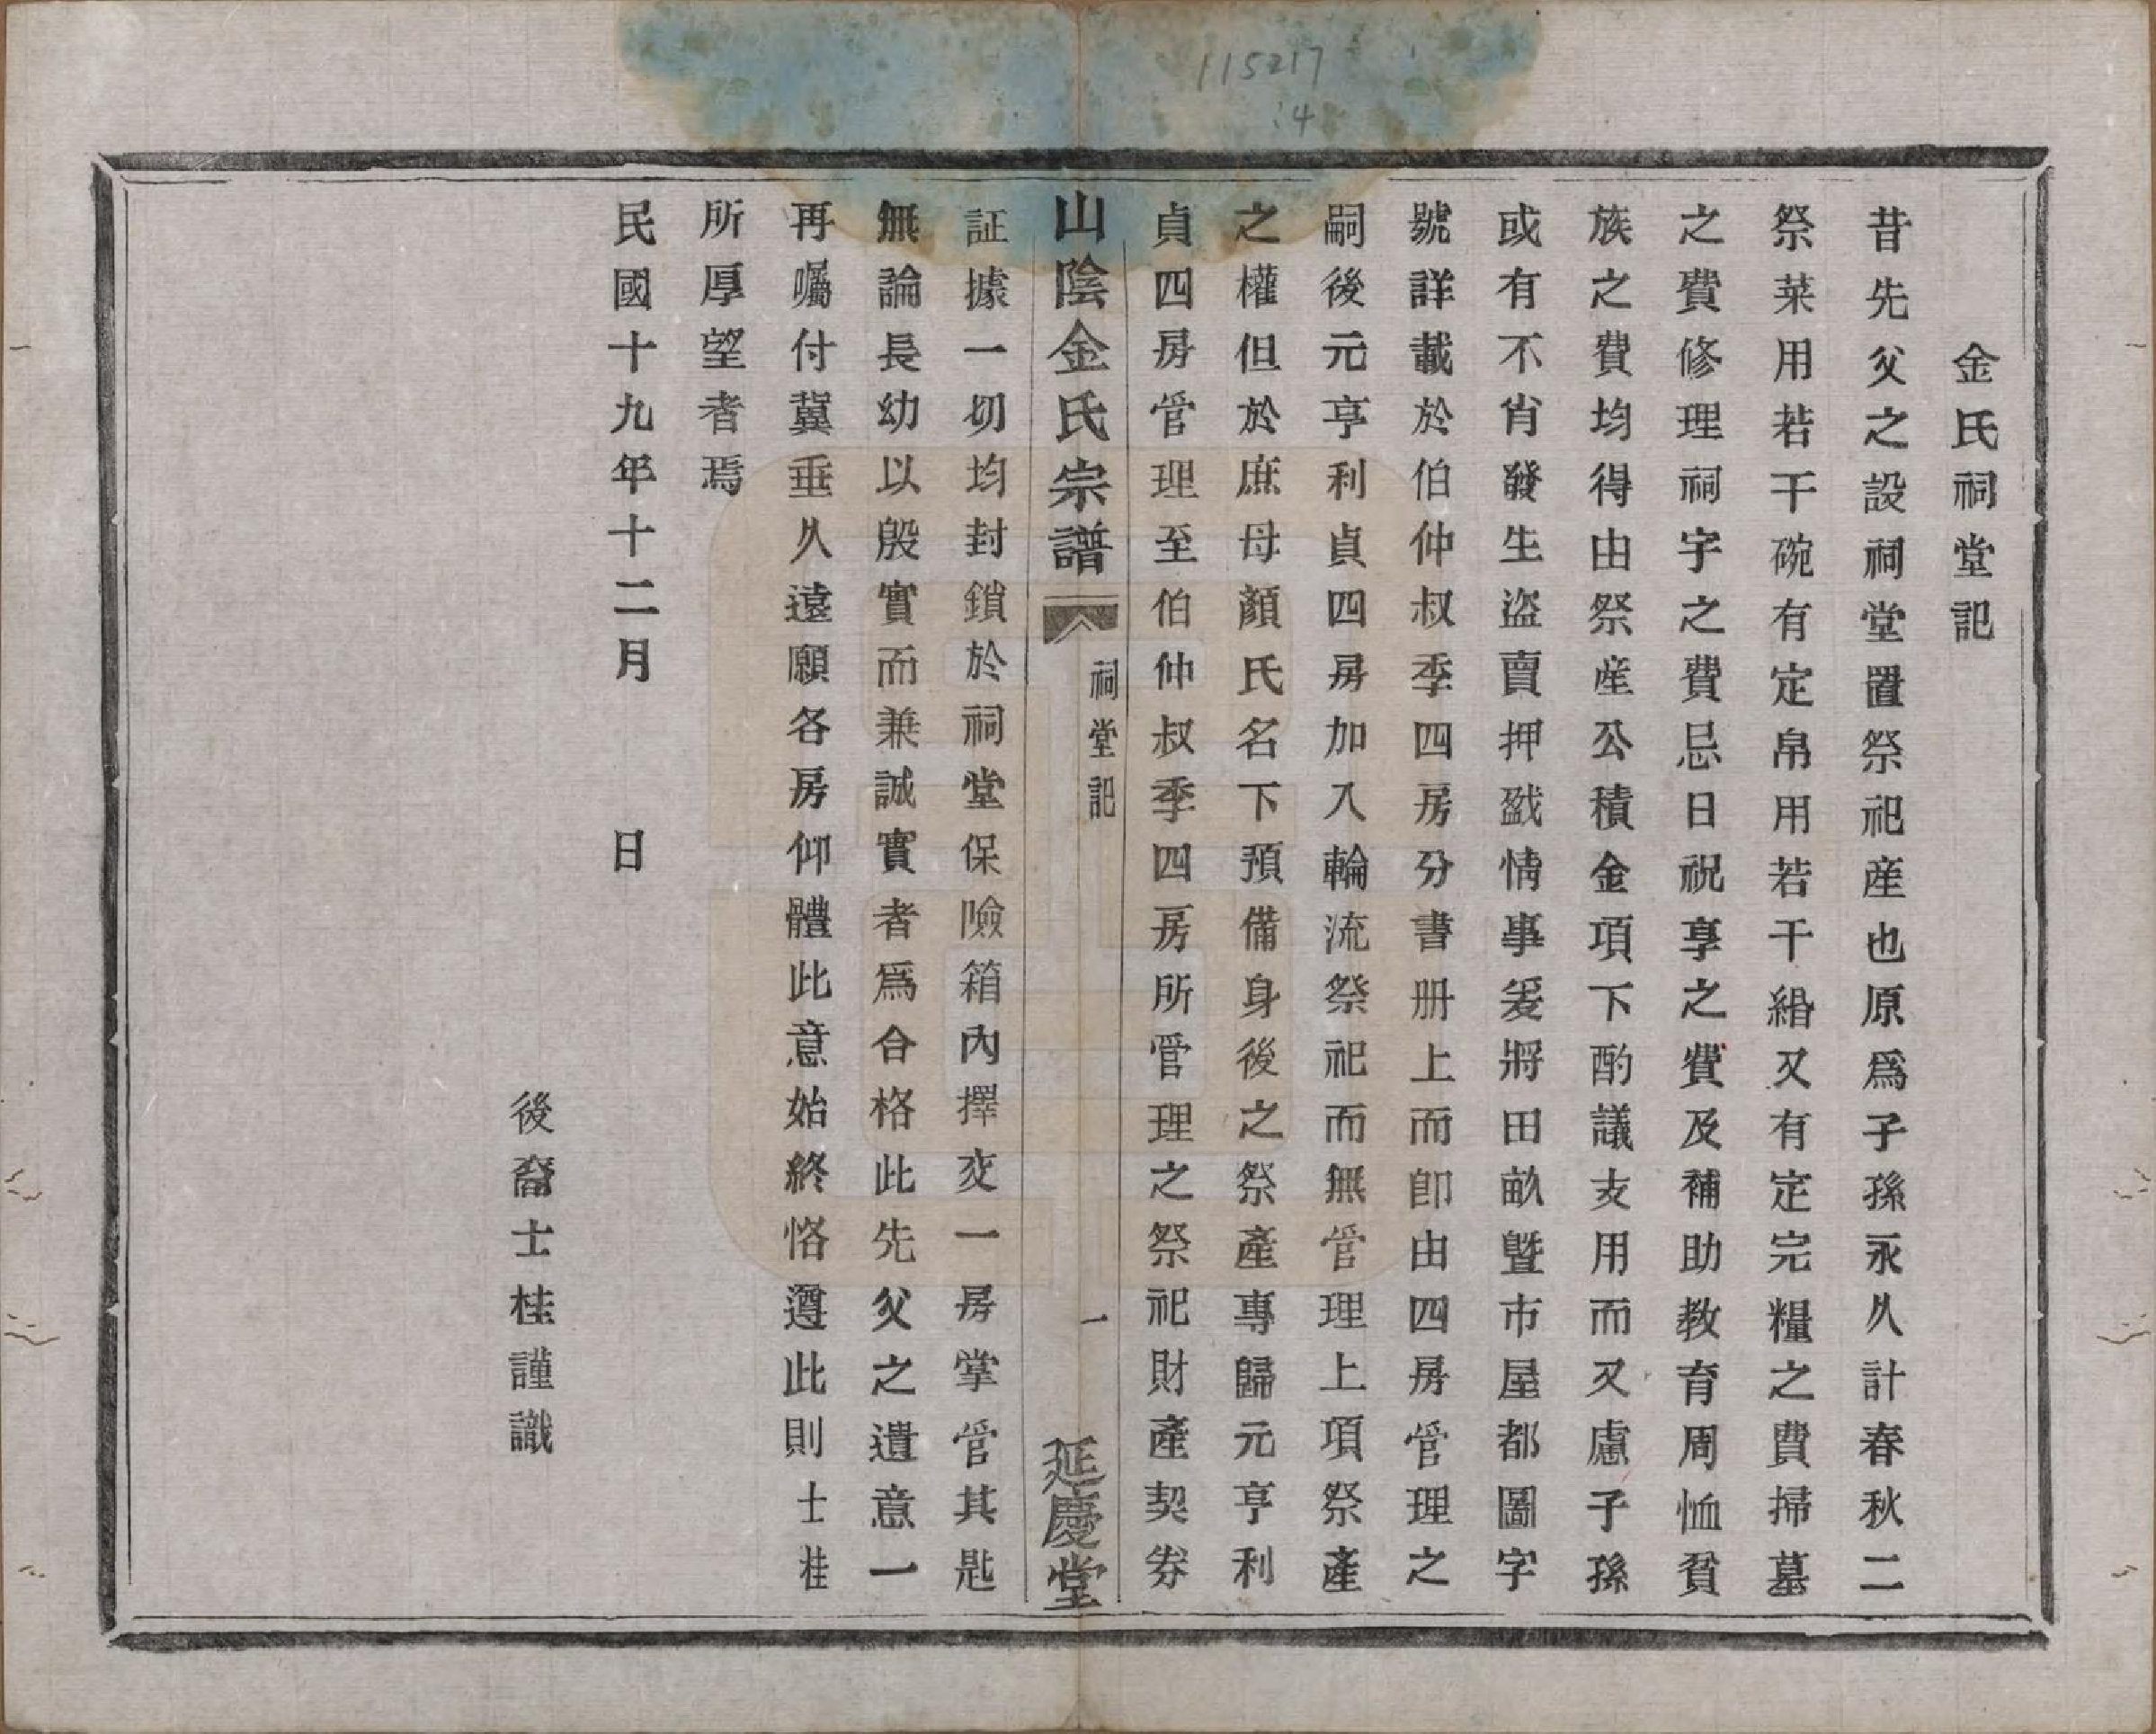 115217
:4
金氏祠堂記
昔先父之設祠堂置祭祀産也原爲子孫永久計春秋二
祭菜用若干碗有定帛用若干緡又有定完糧之費掃墓
之費修理祠宇之費忌日祝享之費及補助教育周恤貧
族之費均得由祭産公積金項下酌議支用而又慮子孫
或有不肖發生盜賣押戤情事爰將田畝曁市屋都圖字
號詳載於伯仲叔季四房分書册上而卽由四房管理之
嗣後元亨利貞四房加入輪流祭祀而無管理上項祭產
之權但於庶母顏氏名下預備身後之祭產專歸元亨利
貞四房管理至伯仲叔季四房所管理之祭祀財產契券
山陰金氏宗譜
祠堂記
一
延慶堂
証據一切均封鎖於祠堂保險箱內擇交一房掌管其匙
無論長幼以殷實而兼誠實者爲合格此先父之遺意一
再囑付冀垂久遠願各房仰體此意始終恪遵此則士桂
所厚望者焉
民國十九年十二月　　日
後裔士桂謹識